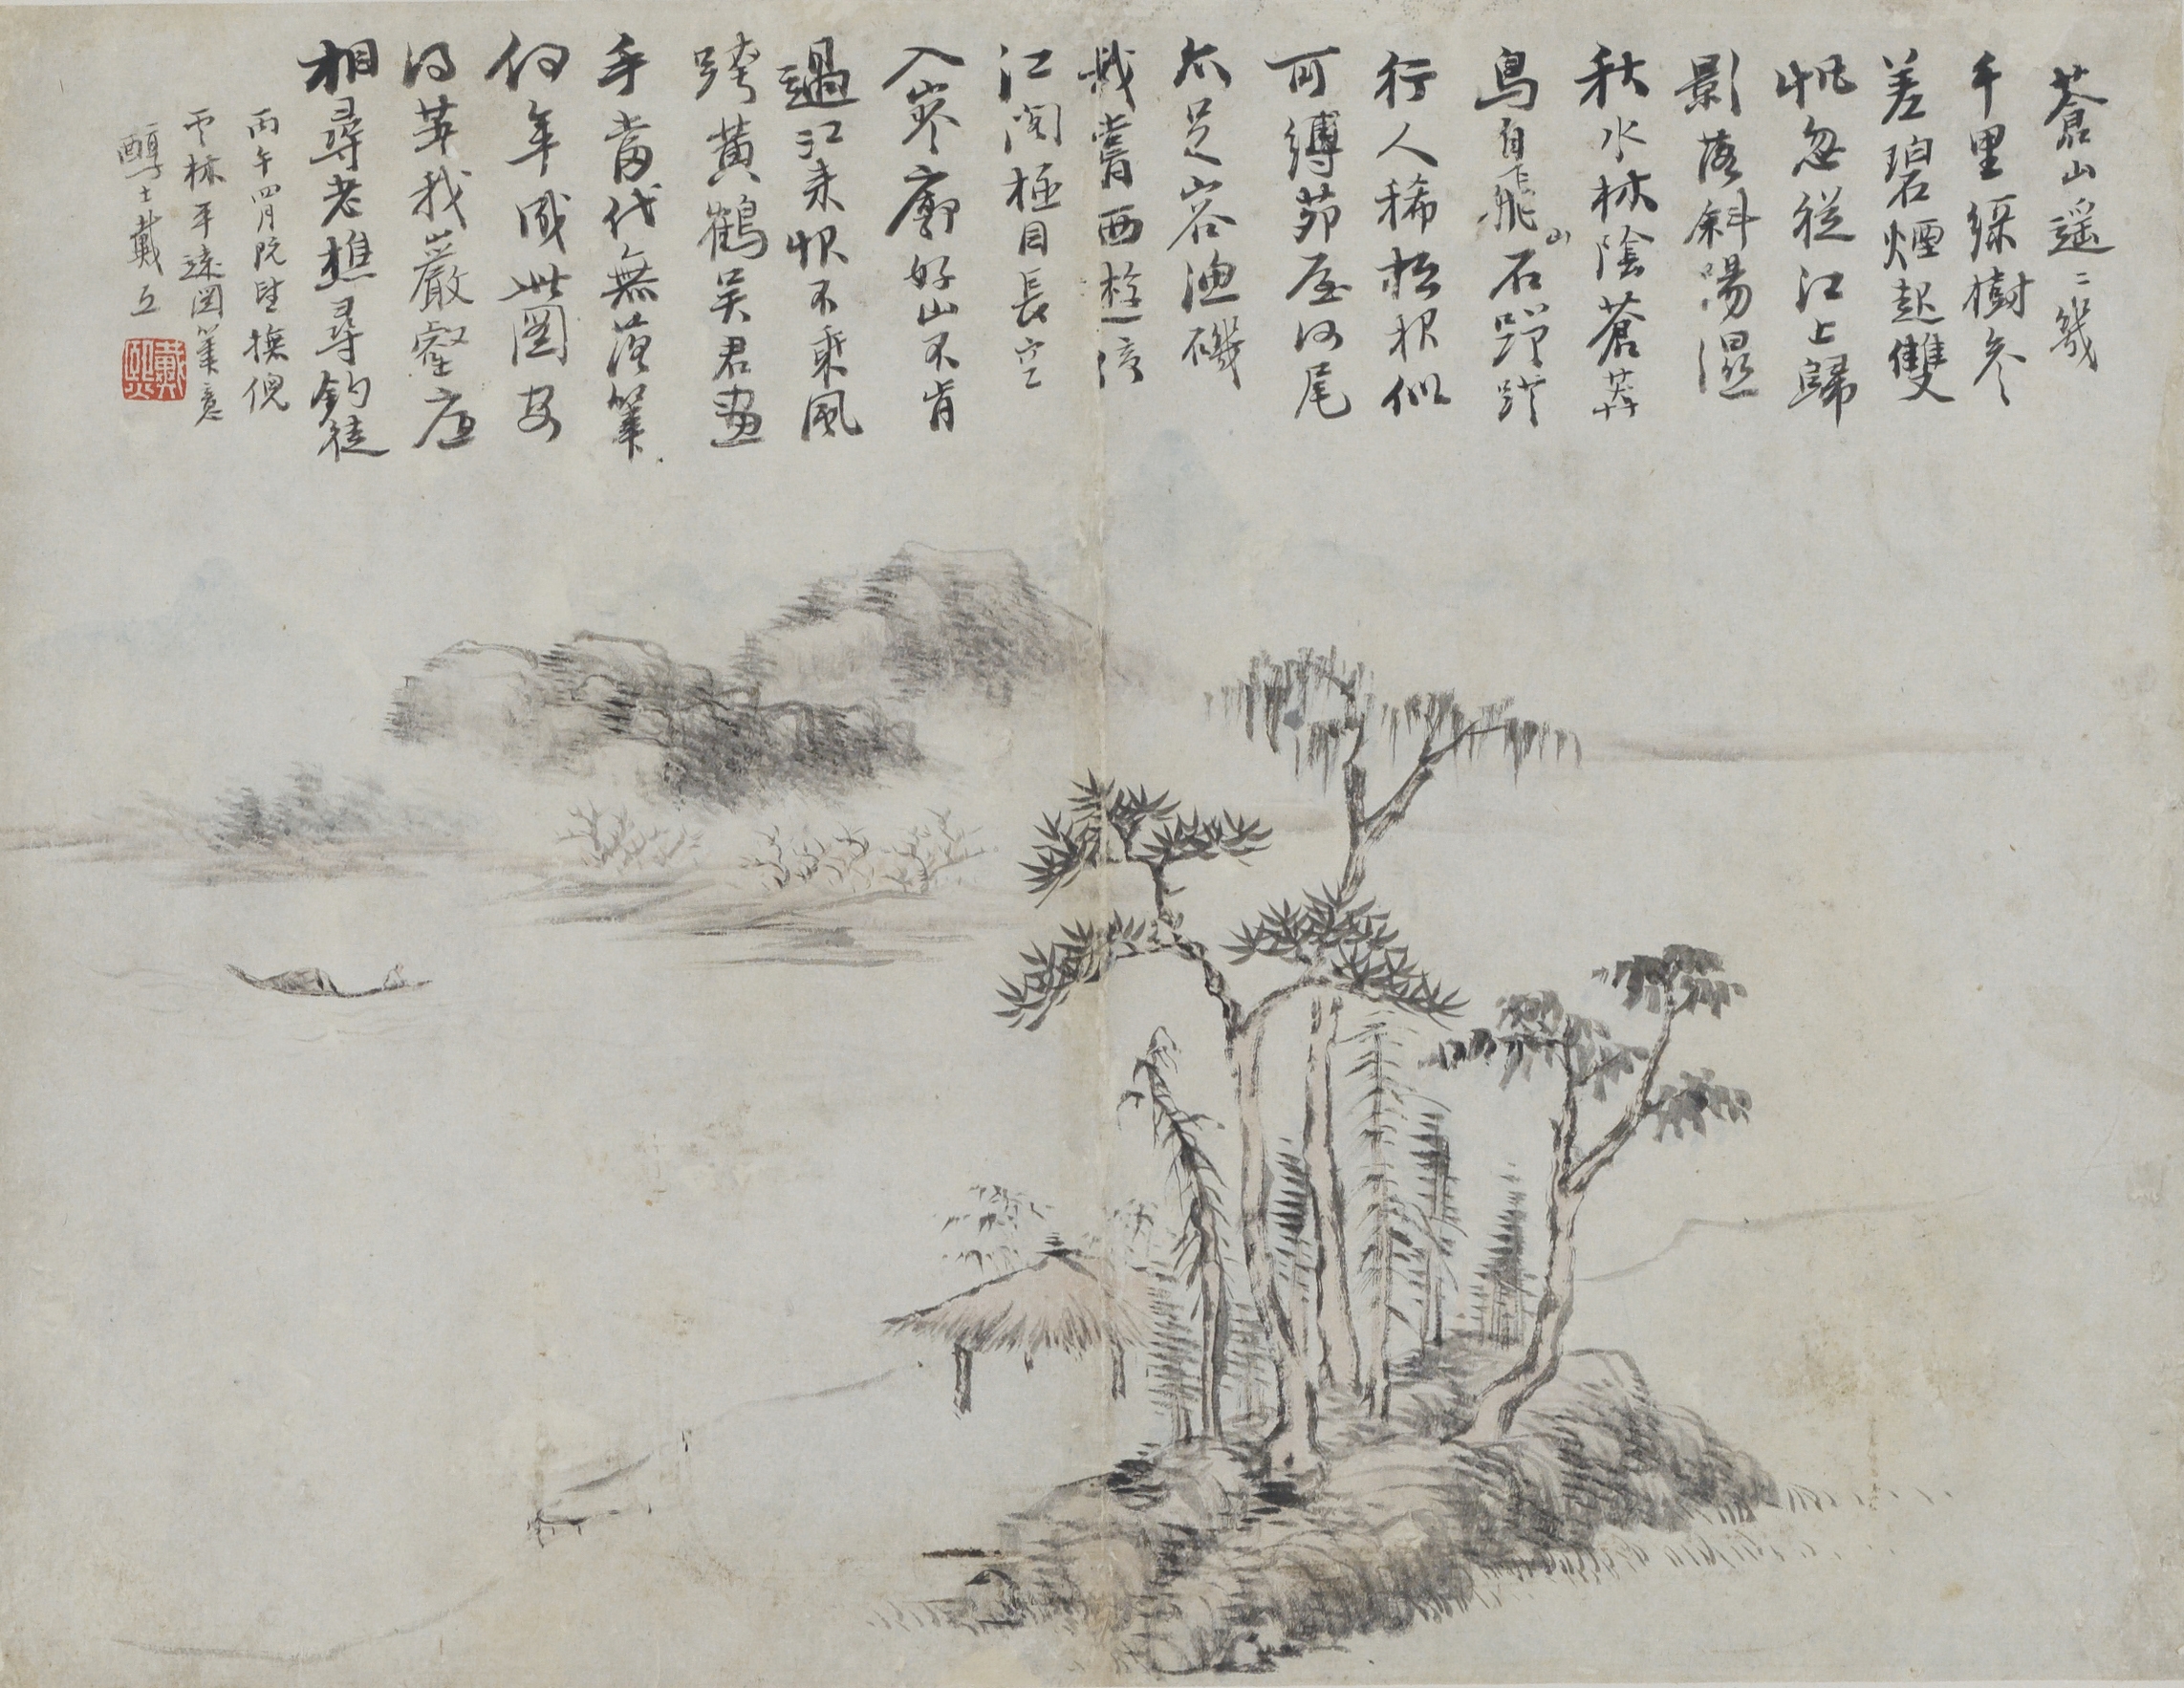 蒼山遥〻幾
千里緑樹參
差碧煙起雙
帆忽從江上歸
影落斜陽濕
秋水林陰蒼莽
鳥自飛山石蹭蹬
行人稀松根似
可縛茆屋沙尾
亦足容漁磯
我嘗西遊倚
江閣極目長空
入寥廓好山不肯
過江来恨不乘風
跨黄鶴吴君畫
手當代無落筆
何年成此圖安
得我巖壑底
相尋老樵尋釣徒
丙午四月既望撫倪
雲林平遠圖筆意
醇士戴
戴熙